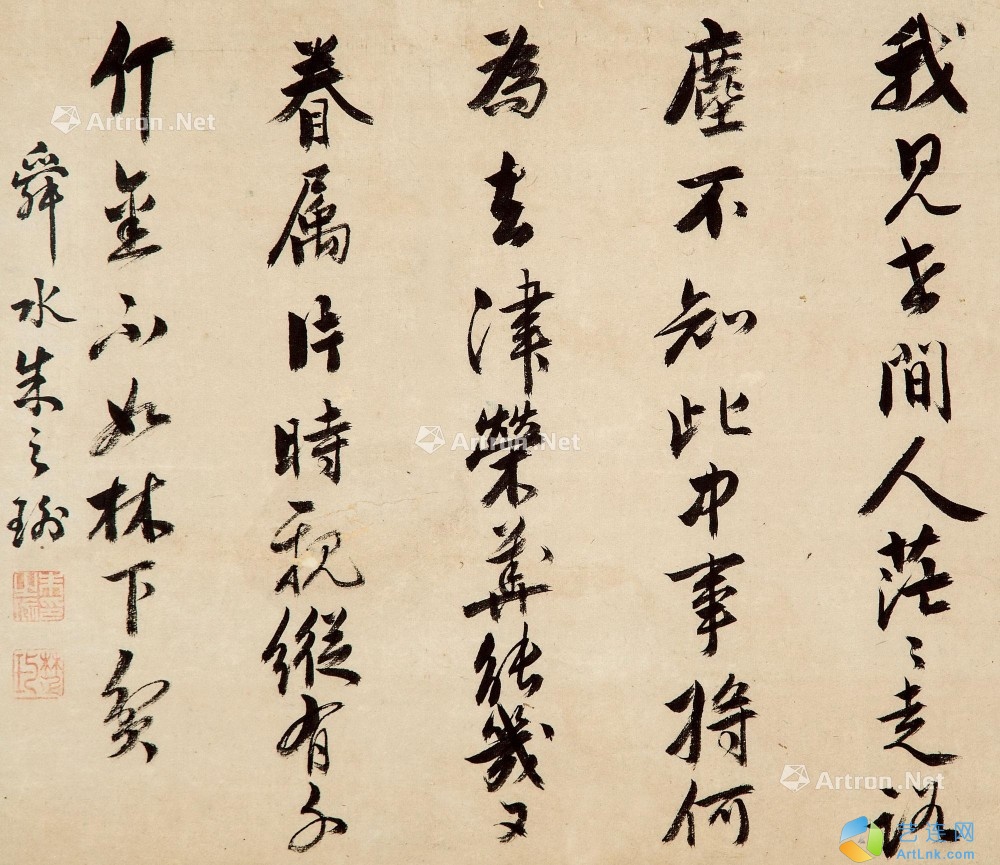 我見世間人茫〻走路
塵不知此中事將何
為去津榮華能幾日
眷属片時親縱有千
斤金不如林下貧
舜水朱之瑜
Artron.Net
Artron.Net
Artron.Net
Artron.Net
艺连网
ArtLnk.com